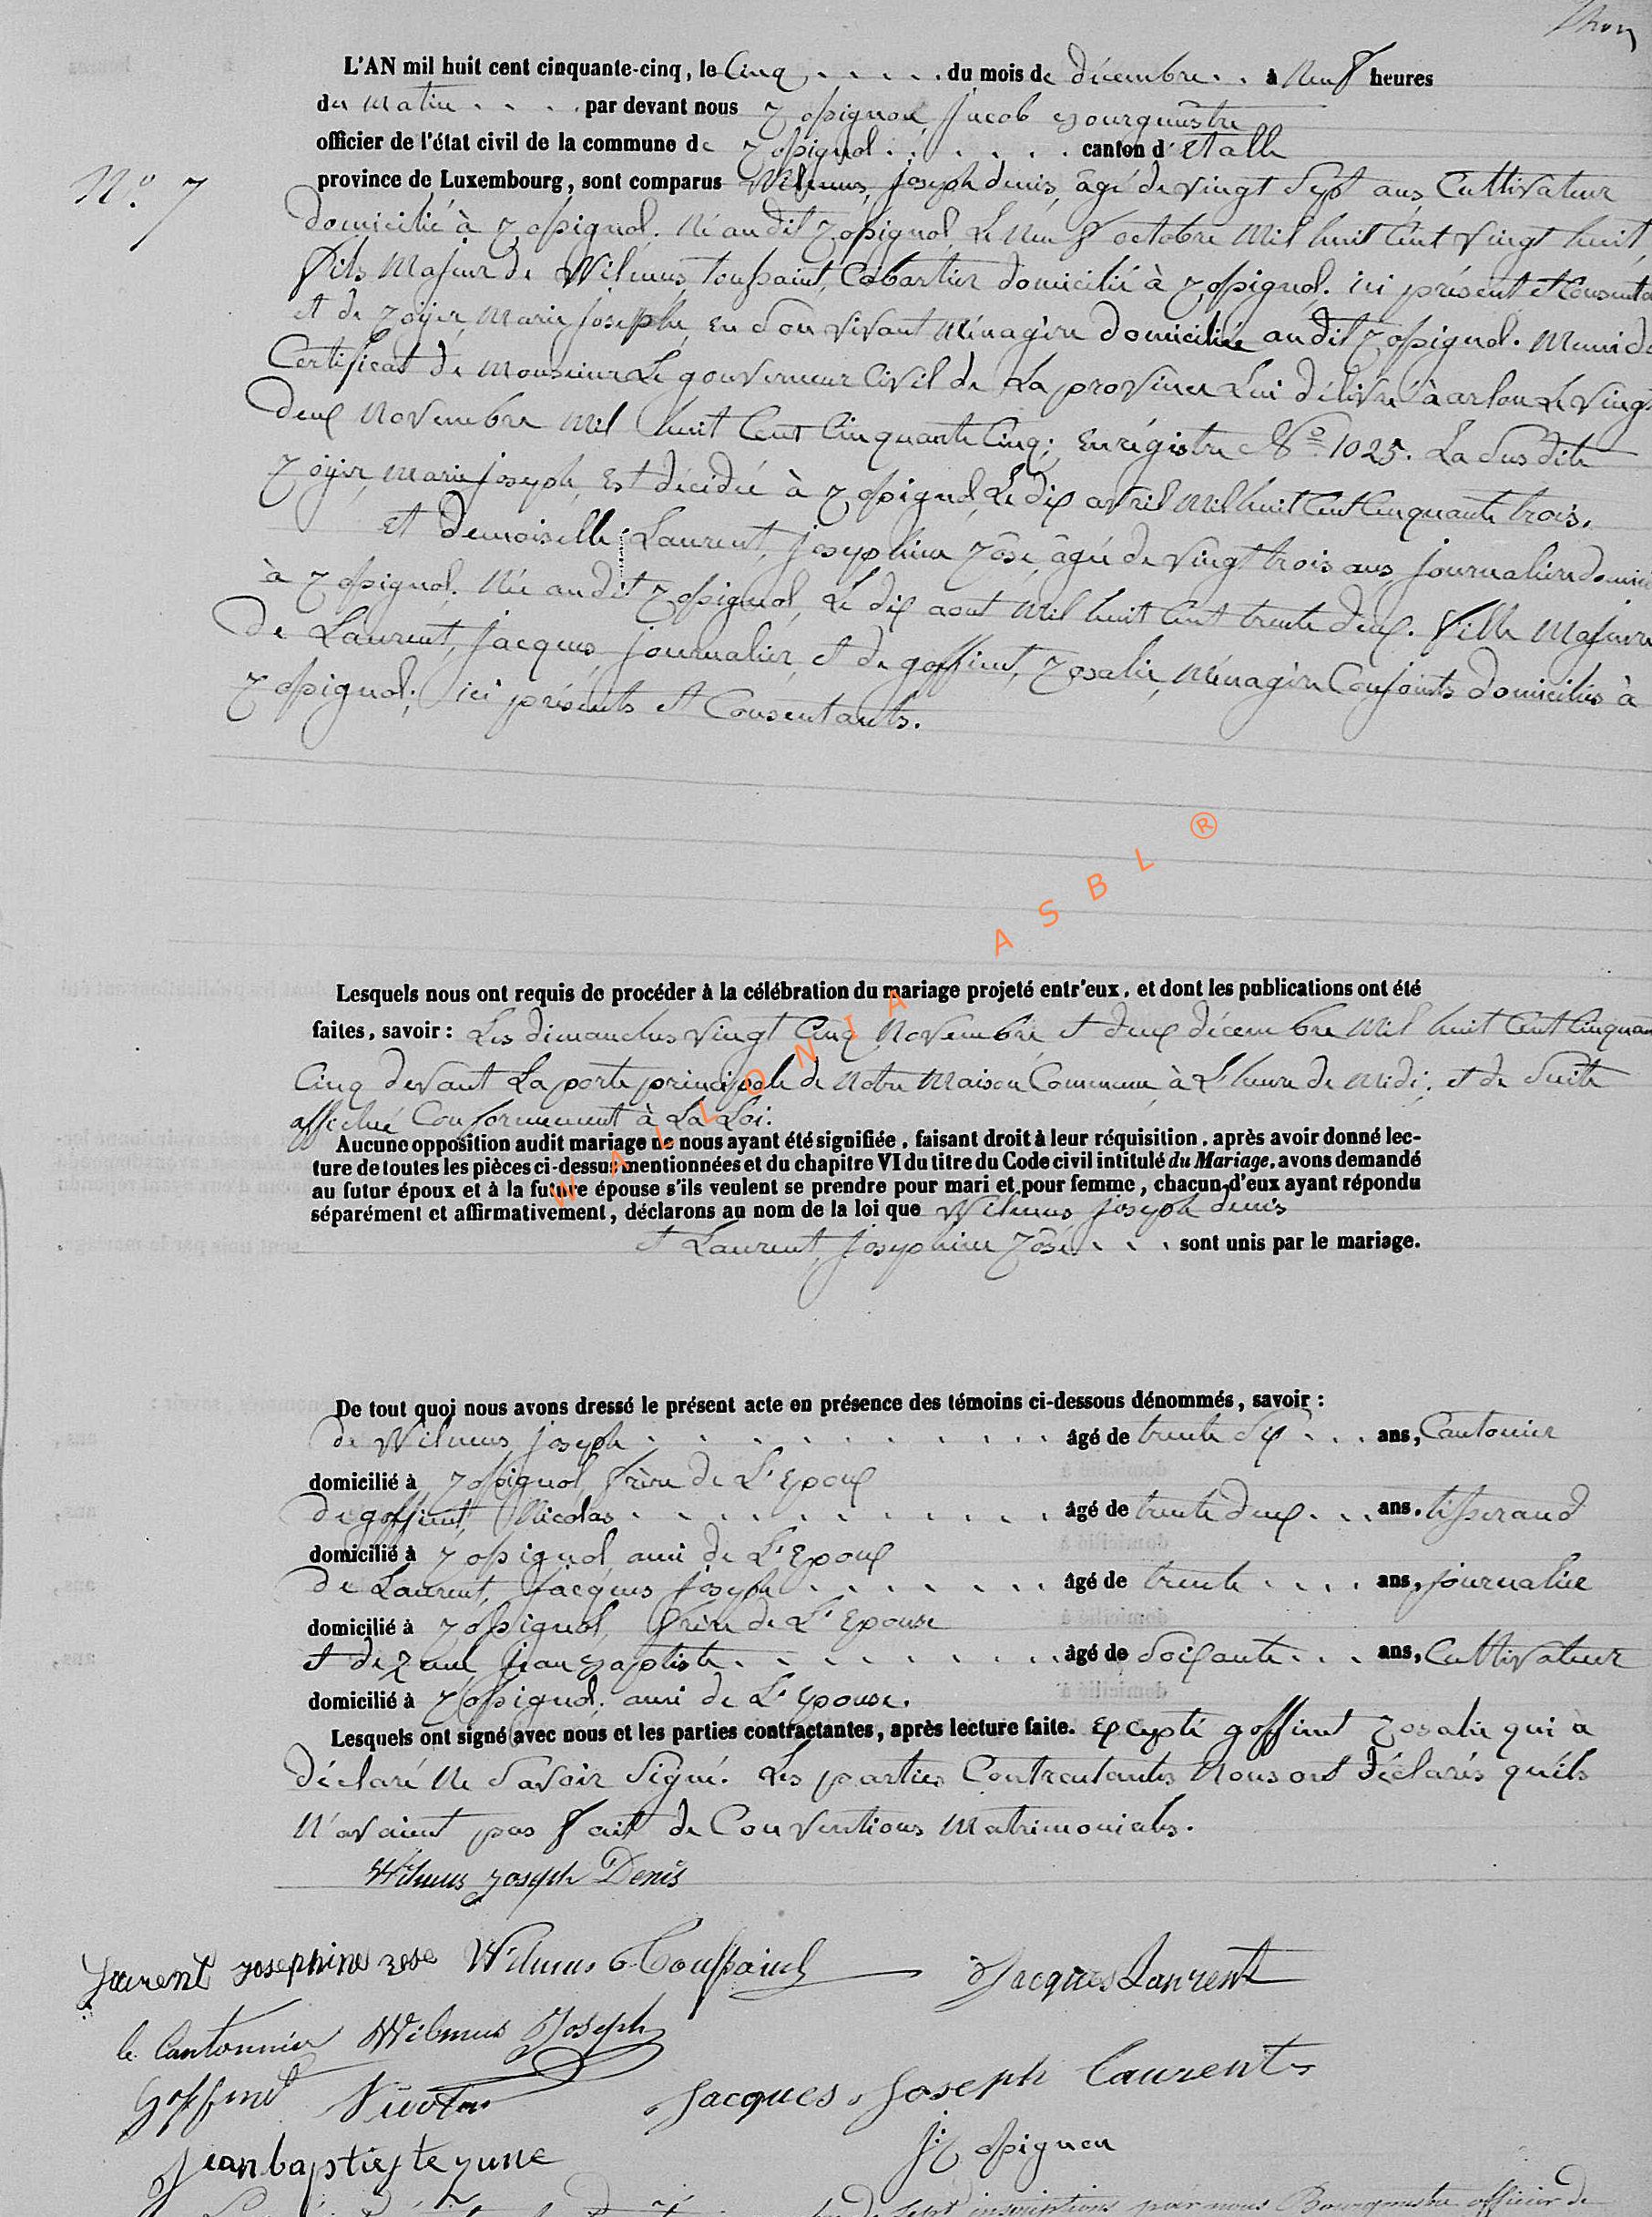 Thon
L'AN mil huit cent cinquante-cinq, le Cinq . . . . . du mois de décembre . . à Neuf heures
du Matin . . . . par devant nous Rossignon, Jacob Bourguestre
officier de l'état civil de la commune de Rossignol . . . . . . canton d'Etalle
N° 7
province de Luxembourg, sont comparus Wilmus, joseph denis, âgé de vingt Sept ans, Cultivateur
domicilié à Rossignol. Né audit Rossignol, Le Neuf octobre Mil huit Cent Vingt huit,
Fils Majeur de Wilmus, toussaint, Cabartier domicilié à Rossignol. ici présent et Consenta
et de Royer, Marie josephe, En Son Vivant Ménagère domiciliée audit Rossignol. Muni d
Certificat de Monsieur Le gouverneur Civil de La province Lui délivré à arlon Le Vingt
deux Novembre Mil huit Cent Cinquante Cinq; Enrégistre N° 1025. La Sus dite
Royer, Marie joseph, Est décédée à Rossignol, Le dix avril Mil huit Cent Cinquante trois.
et Demoiselle Laurent, josephine Rôse, âgée de Vingt trois ans, journalière domici
à Rossignol. Née audit Rossignol, Le dix aout Mil huit Cent trente deux. Fille Majeure
De Laurent, jacques, journalier, et de goffinet, Rosalie, Ménagère Conjoints domiciliés à
Rossignol; ici présents et Consentants.
Lesquels nous ont requis de procéder à la célébration du mariage projeté entr'eux, et dont les publications ont été
faites, savoir : Les dimanches Vingt Cinq Novembre et deux décembre Mil huit Cent Cinquan
Cinq devant La porte principale de Notre Maison Commune à L'heure de Midi; et de Suite
affiché Conformement à La Loi.
Aucune opposition audit mariage ne nous ayant été signifiée, faisant droit à leur réquisition, après avoir donné lec-
ture de toutes les pièces ci-dessus mentionnées et du chapitre VI du titre du Code civil intitulé du Mariage, avons demandé
au futur époux et à la future épouse s'ils veulent se prendre pour mari et pour femme, chacun d'eux ayant répondu
séparément et affirmativement, déclarons au nom de la loi que Wilmus joseph denis
et Laurent, josephine Rôse . . . sont unis par le mariage.
WALLONIA ASBL ®
De tout quoi nous avons dressé le présent acte en présence des témoins ci-dessous dénommés, savoir :
de Wilmus, joseph . . . . . . . . . . âgé de trente Six . . . ans, Cantonier
domicilié à Rossignol, frère de L'Epoux
de goffinet, Nicolas . . . . . . . . . . âgé de trente deux . . . ans, tisserand
domicilié à Rossignol ami de L'Epoux
de Laurent, Jacques joseph . . . . . . . âgé de trente . . . . ans, journalier
domicilié à Rossignol, frère de L'Epouse
et de Zune jean Baptiste . . . . . . . . . âgé de Soixante . . . ans, Cultivateur
domicilié à Rossignol, ami de L'Epouse.
Lesquels ont signé avec nous et les parties contractantes, après lecture faite. Excepté goffinet Rosalie qui à
déclaré Ne Savoir Signé. Les parties Contractantes Nous ont déclarés qu'ils
N'avaient pas Fait de Conventions Matrimoniales.
Wilmus joseph Denis
Laurent Josephine rose Wilmus Toussaint Jacques Laurent
le Cantonnier Wilmus Joseph
Goffinet Nicolas Jacques Joseph Laurent
Jean baptiste zune J: Rossignon
de Sept inscriptions par nous Bourgmestre officier de